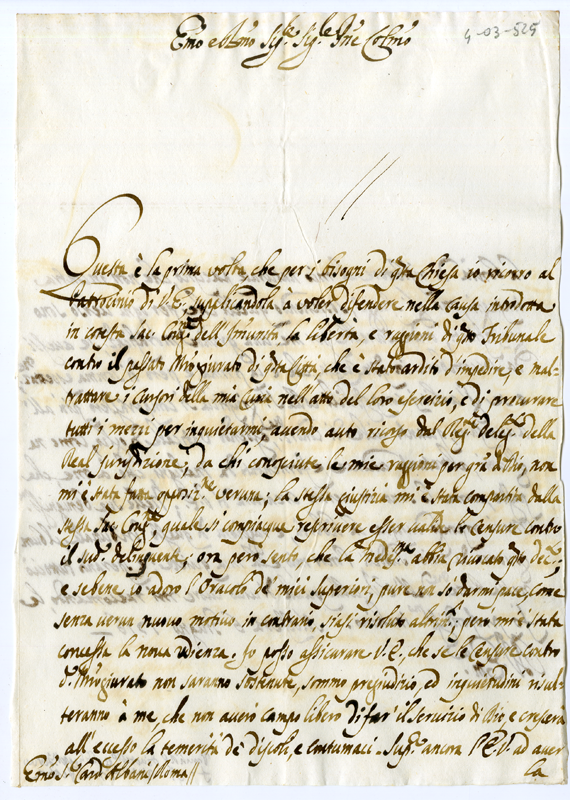 Emo e Rmo Sig.re Sig.re Pne Colmo
4-03-525
Questa è la prima volta, che per i bisogni di qta Chiesa io ricorro al
Patrocinio di V.E. supplicandola à voler difendere nella Causa introdotta
in cotesta Sac. Cong.ne dell'Immunità la libertà, e raggioni di qto Tribunale
contro il passato Mrogiurato di qta Città, che è stato ardito d'impedire, e mal-
trattare i Cursori della mia Curia nell'atto del loro esercizio, e di procurare
tutti i mezzi per inquietarmi, avendo auto ricorso dal Reg.o Deleg.o della
Real jurisdizione; da chi conosciute le mie raggioni per grã di Dio, non
mi è stata fatta oposiz.ne veruna; la stessa giustizia mi è stata compartita dalla
stessa Sac. Cong.ne, quale si compiacque rescrivere esser valide le Censure contro
il sud.o delinquente; ora però sento, che la medes.a abbia rivocato qto dec.o;
e sebene io adoro l'Oracolo de miei Superiori, pure non sò darmi pace, come
senza verun nuovo motivo in contrario, siasi risoluto altrim.e; però mi è stata
concessa la nova udienza. Io posso assicurare V.E., che se le Censure contro
d.o Mrogiurato non saranno sostenute, sommo pregiudizio, ed inquietudini risul-
teranno à me, che non averò campo libero di far' il servizio di Dio, e crescerà
all'eccesso la temerità de discoli, e contumaci. Sup.co ancora l'E.V. ad aver
Emo S.r Card. Albani Roma
la